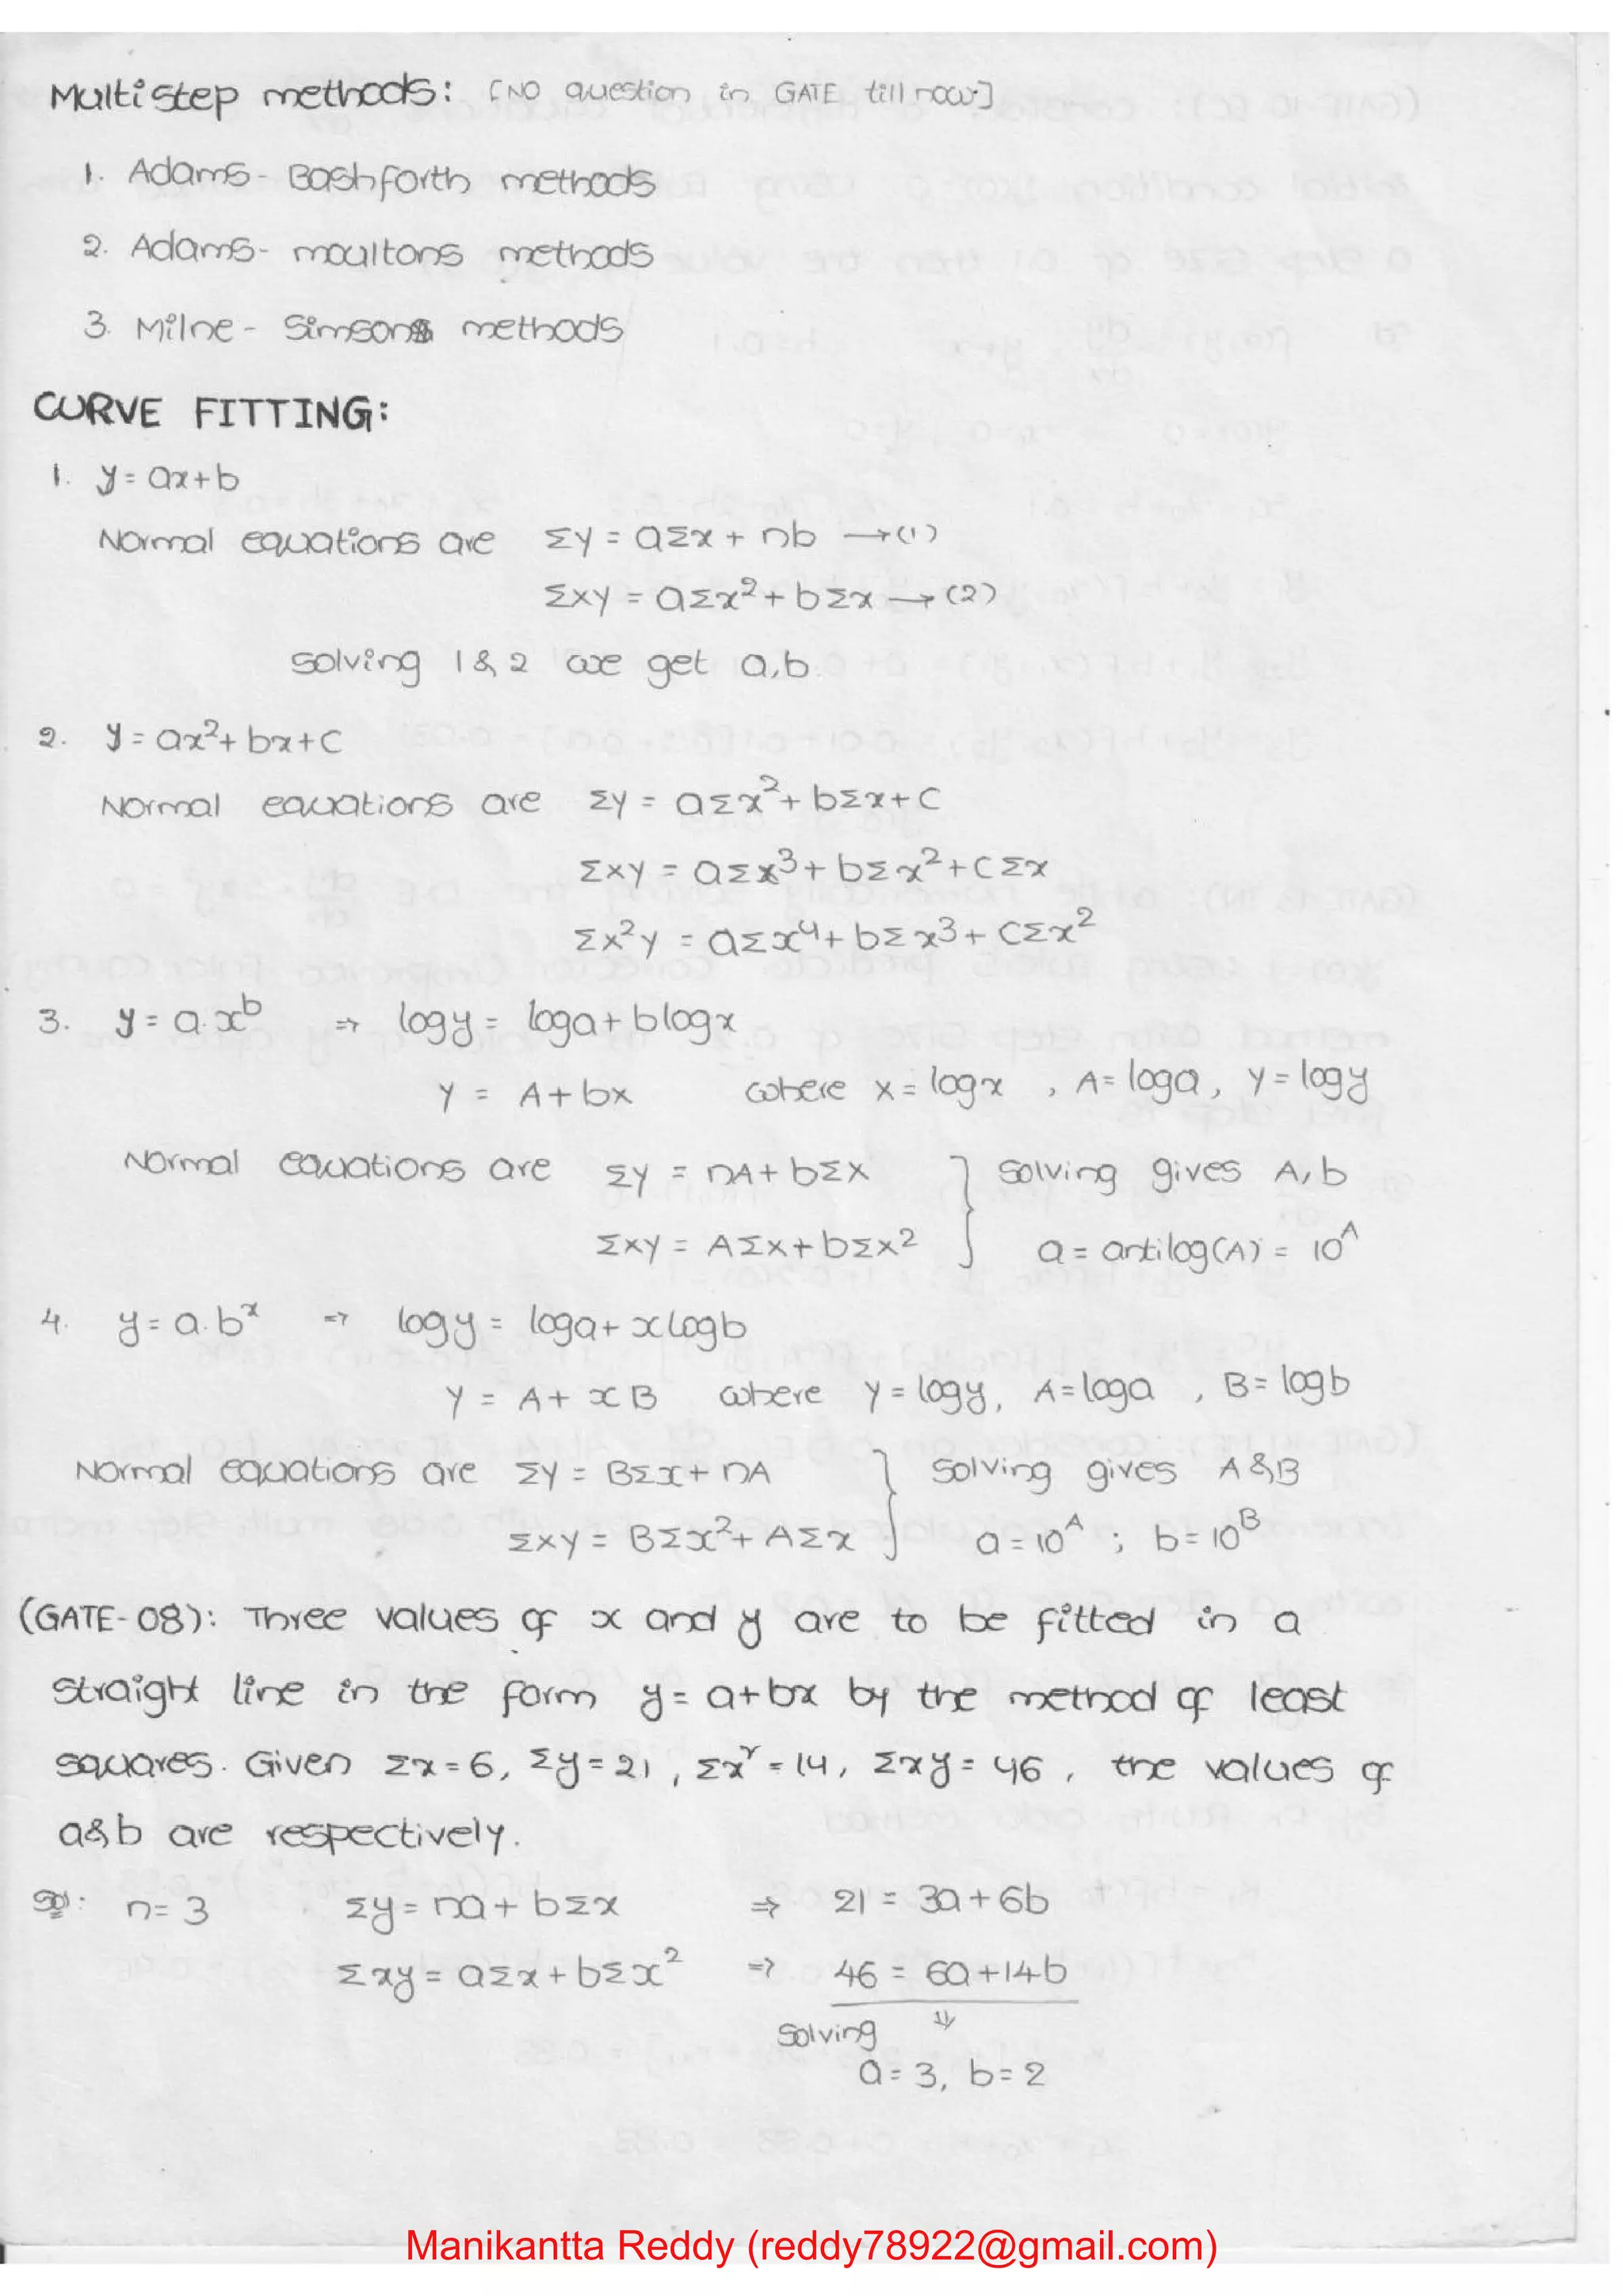 Multistep methods: [NO question in GATE till now]
1. Adams - Bashforth methods
2. Adams - moultons methods
3. Milne - Simsons methods
CURVE FITTING:
1. y = ax+b
Normal equations are Σy = aΣx + nb →(1)
Σxy = aΣx²+ bΣx →(2)
solving 1 & 2 we get a,b.
2. y = ax²+ bx+c
Normal equations are Σy = aΣx²+ bΣx+ c
Σxy = aΣx³+ bΣx²+cΣx
Σx²y = aΣx⁴+ bΣx³+ cΣx²
3. y = a.xᵇ ⇒ logy = loga+ blogx
Y = A+ bX where X = logx , A= loga, Y = logy
Normal equations are ΣY = nA+ bΣX } solving gives A, b
ΣXY = AΣX+ bΣX² a = antilog(A) = 10ᴬ
4. y = a.bˣ ⇒ logy = loga+ xlogb
Y = A+ xB where Y = logy, A=loga , B= logb
Normal equations are ΣY = BΣx+ nA } solving gives A &B
ΣXY = BΣx²+ AΣx a = 10ᴬ ; b= 10ᴮ
(GATE-08): Three values of x and y are to be fitted in a
straight line in the form y = a+bx by the method of least
squares. Given Σx=6, Σy=21, Σxʳ=14, Σxy= 46, the values of
a&b are respectively.
Sol: n= 3 Σy= na+ bΣx ⇒ 21 = 3a+6b
Σxy= aΣx+bΣx² ⇒ 46 = 6a+14b
Solving ⇓
a= 3, b= 2
Manikantta Reddy (reddy78922@gmail.com)